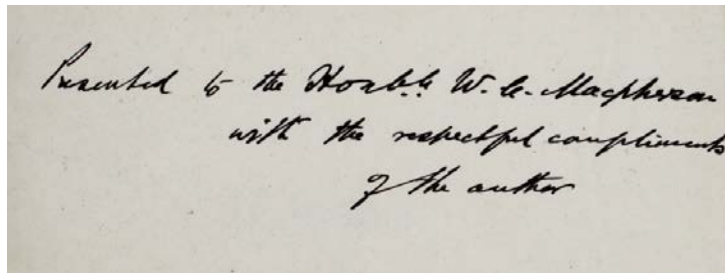 Presented to the Honble W. C. Macpherson
with the respectful compliments
of the author